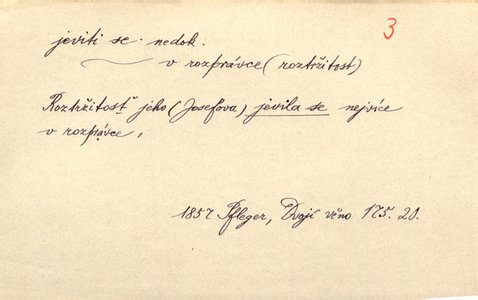 3
jeviti se nedok.
v rozprávce (roztržitost)
Roztržitosť jeho (Josefova) jevila se nejvíce
v rozprávce,
1857 Pfleger, Dvojí věno 175. 20.